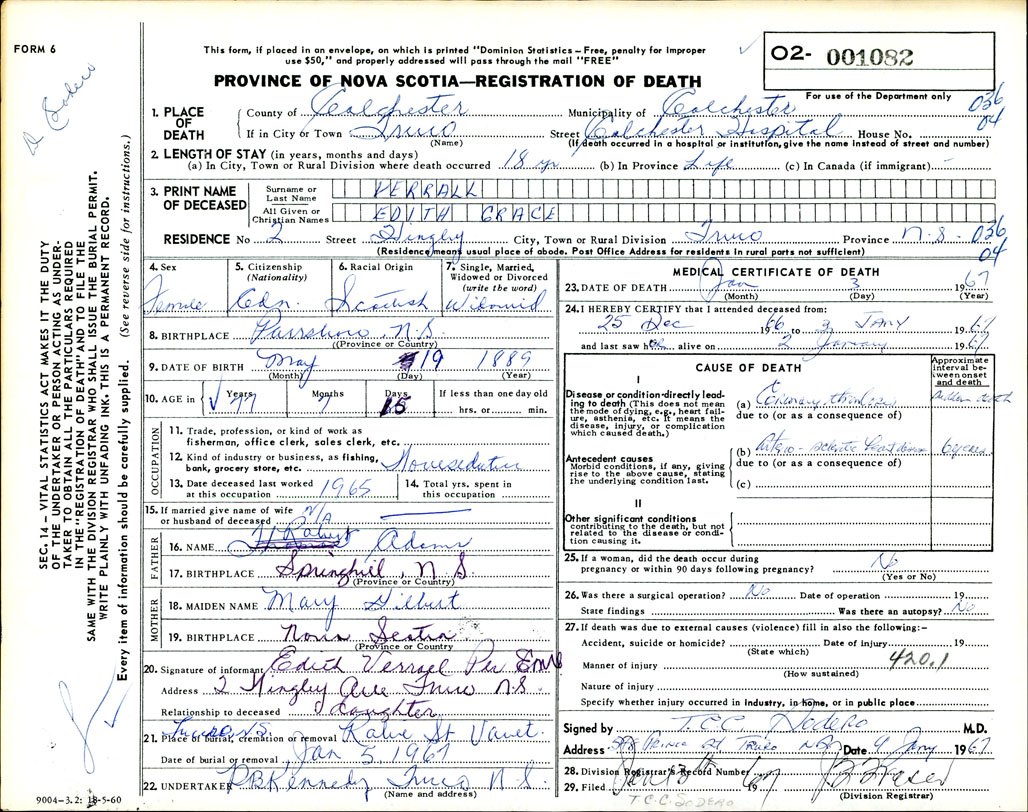 FORM 6
This form, if placed in an envelope, on which is printed "Dominion Statistics – Free, penalty for improper
use $50," and properly addressed will pass through the mail "FREE"
PROVINCE OF NOVA SCOTIA—REGISTRATION OF DEATH
02- 001082
For use of the Department only
036
04
D. Sodero
1. PLACE OF DEATH
County of Colchester Municipality of Colchester
If in City or Town Truro Street Colchester Hospital House No.
(Name) (If death occurred in a hospital or institution, give the name instead of street and number)
2. LENGTH OF STAY (in years, months and days)
(a) In City, Town or Rural Division where death occurred 18 yr (b) In Province Life (c) In Canada (if immigrant) –
3. PRINT NAME OF DECEASED
Surname or Last Name VERRALL
All Given or Christian Names EDITH GRACE
RESIDENCE No 2 Street Kingley City, Town or Rural Division Truro Province N.S - 036
04
(Residency means usual place of abode. Post Office Address for residents in rural parts not sufficient)
4. Sex Female
5. Citizenship (Nationality) Cdn.
6. Racial Origin Scottish
7. Single, Married, Widowed or Divorced (write the word) Widowed
8. BIRTHPLACE Parrsboro, N.S.
(Province or Country)
9. DATE OF BIRTH May 19 1889
(Month) (Day) (Year)
10. AGE in Years 77 Months 7 Days 15 If less than one day old
hrs. or min.
OCCUPATION
11. Trade, profession, or kind of work as
fisherman, office clerk, sales clerk, etc.
12. Kind of industry or business, as fishing,
bank, grocery store, etc.
13. Date deceased last worked
at this occupation 1965
14. Total yrs. spent in
this occupation
15. If married give name of wife
or husband of deceased N/A
FATHER
16. NAME Robert Adams
17. BIRTHPLACE Springhill, N.S
(Province or Country)
MOTHER
18. MAIDEN NAME Mary Gilbert
19. BIRTHPLACE Nova Scotia
(Province or Country)
20. Signature of informant Edith Verrall Per
Address 2 Kingley Ave Truro N.S.
Relationship to deceased daughter
21. Place of burial, cremation or removal Truro N.S.
Date of burial or removal Jan 5, 1967
22. UNDERTAKER P.B. Kennedy Truro N.S.
(Name and address)
9004—3.2: 18-5-60
MEDICAL CERTIFICATE OF DEATH
23. DATE OF DEATH Jan 3 1967
(Month) (Day) (Year)
24. I HEREBY CERTIFY that I attended deceased from:
25 Dec 1966 to 3 JANY 1967
and last saw her alive on 2 January 1967
CAUSE OF DEATH
Approximate interval between onset and death
I
Disease or condition directly leading to death (This does not mean
the mode of dying, e.g., heart failure, asthenia, etc. It means the
disease, injury, or complication
which caused death.)
(a) Coronary thrombosis sudden death
due to (or as a consequence of)
Antecedent causes
Morbid conditions, if any, giving
rise to the above cause, stating
the underlying condition last.
(b)
due to (or as a consequence of)
(c)
II
Other significant conditions
contributing to the death, but not
related to the disease or condition causing it.
25. If a woman, did the death occur during
pregnancy or within 90 days following pregnancy? No
(Yes or No)
26. Was there a surgical operation? No Date of operation 19
State findings Was there an autopsy? No
27. If death was due to external causes (violence) fill in also the following:-
Accident, suicide or homicide? Date of injury 19
(State which)
Manner of injury 420.1
(How sustained)
Nature of injury
Specify whether injury occurred in industry, in home, or in public place
Signed by T.C.C. Sodero M.D.
Address Prince St Truro NS Date 4 Jany 1967
28. Division Registrar's Record Number
29. Filed Jan 1967
(Division Registrar)
T.C.C. SODERO
SEC. 14 – VITAL STATISTICS ACT MAKES IT THE DUTY
OF THE UNDERTAKER OR PERSON ACTING AS UNDERTAKER TO OBTAIN ALL THE PARTICULARS REQUIRED
IN THE "REGISTRATION OF DEATH" AND TO FILE THE
SAME WITH THE DIVISION REGISTRAR WHO SHALL ISSUE THE BURIAL PERMIT.
WRITE PLAINLY WITH UNFADING INK. THIS IS A PERMANENT RECORD.
Every item of information should be carefully supplied. (See reverse side for instructions.)